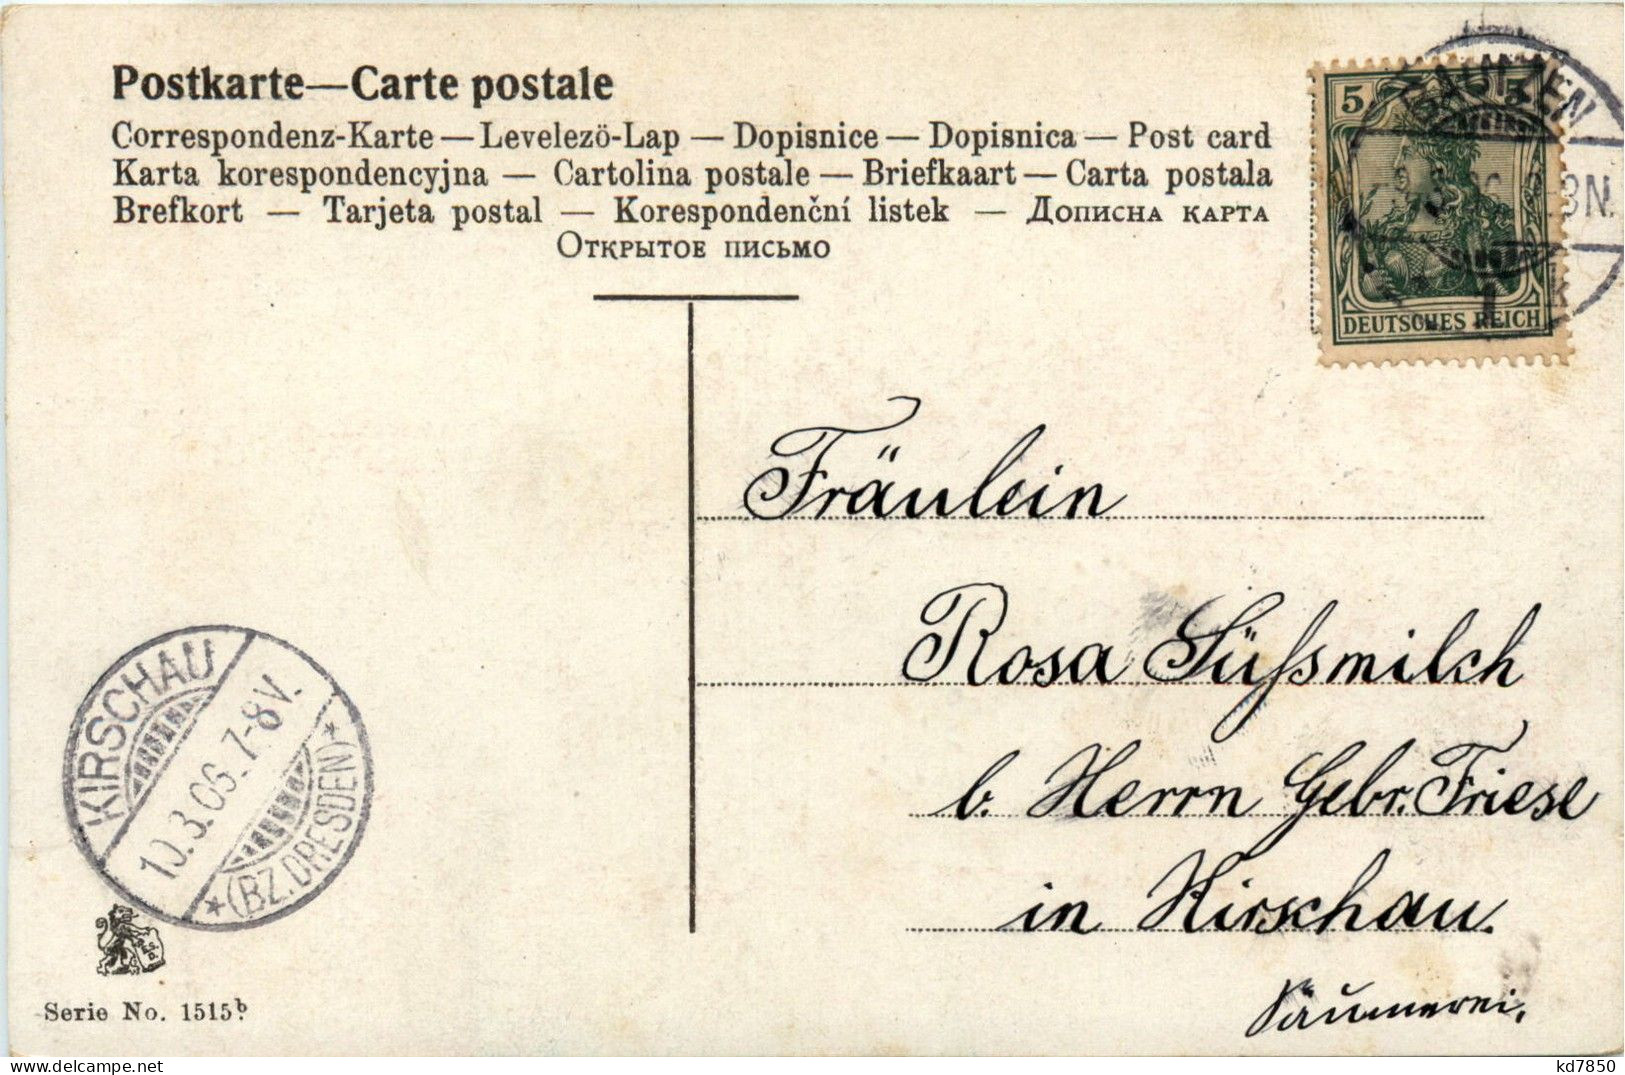 Postkarte—Carte postale
Correspondenz-Karte — Levelező-Lap — Dopisnice — Dopisnica — Post card
Karta korespondencyjna — Cartolina postale — Briefkaart — Carta postala
Brefkort — Tarjeta postal — Korespondenční listek — Дописна карта
Открытое письмо
5 5
DEUTSCHES REICH
BAUTZEN
3N.
1 k
Fräulein
Rosa Süßmilch
b. Herrn Gebr. Friese
in Kirschau.
Säumerei.
KIRSCHAU
10.3.06. 7-8V.
*(BZ.DRESDEN)*
Serie No. 1515b.
kd7850